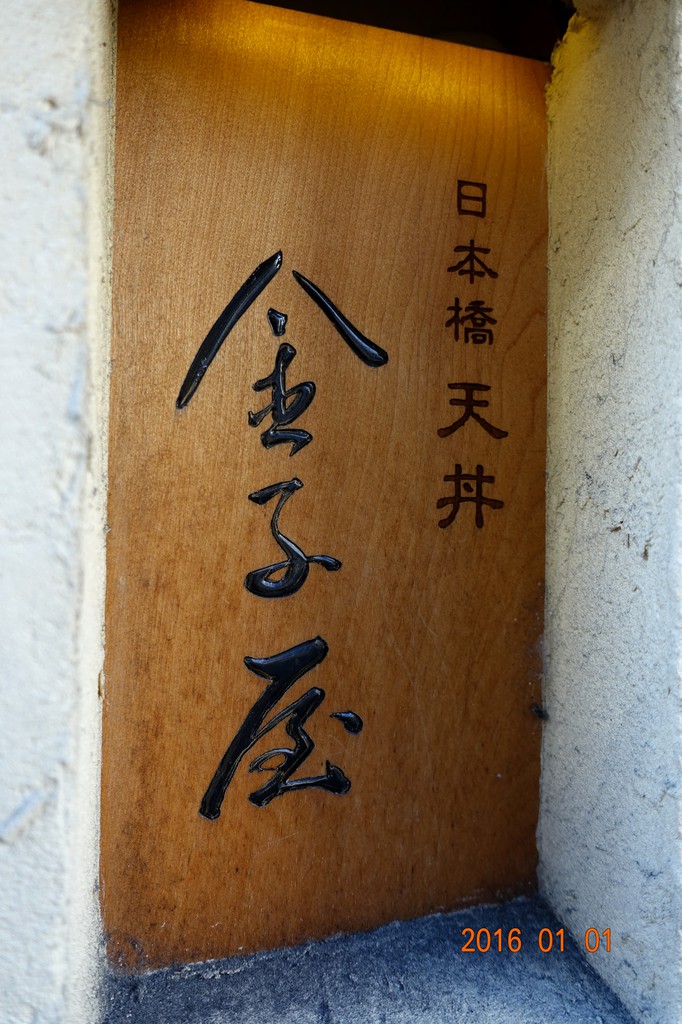 日本橋 天丼
金子屋
2016 01 01